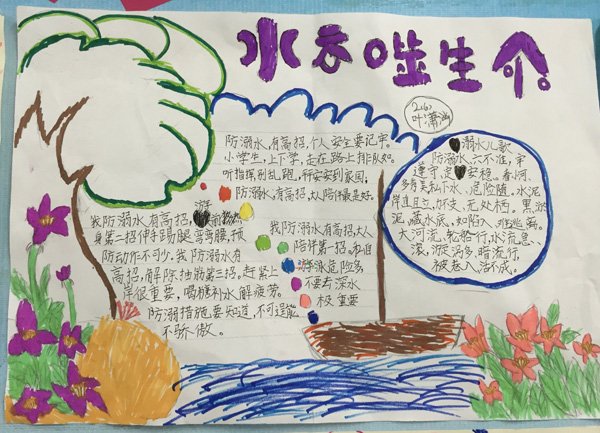 水吞噬生命
2(6)
叶潇
防溺水,有高招,个人安全要记牢。
小学生,上下学,走在路上排队如。
听指挥,别乱跑,平安安到家园;
防溺水,有高招,大人陪伴最是好。
我防溺水有高招,游
身第二招伸手踢腿弯弯腰,预
防动作不可少,我防溺水有
高招,解除抽筋第三招,赶紧上
岸很重要,喝糖补水解疲劳。
防溺措施要知道,不可逞能
不骄傲。
我防溺水有高招大人
陪伴第一招,
游泳造险多
不要去深水
极重要
溺水儿歌
防溺水,六不准,牢
遵守,定安稳。春河,
多有美私下水,危险随,水泥
岸直且立,坏支,无处栖。黑淤
泥,藏水底,如陷入,难逃离。
大河流,轮船行,水流急、
滚,漩涡多,暗流行,
被卷入活不成。